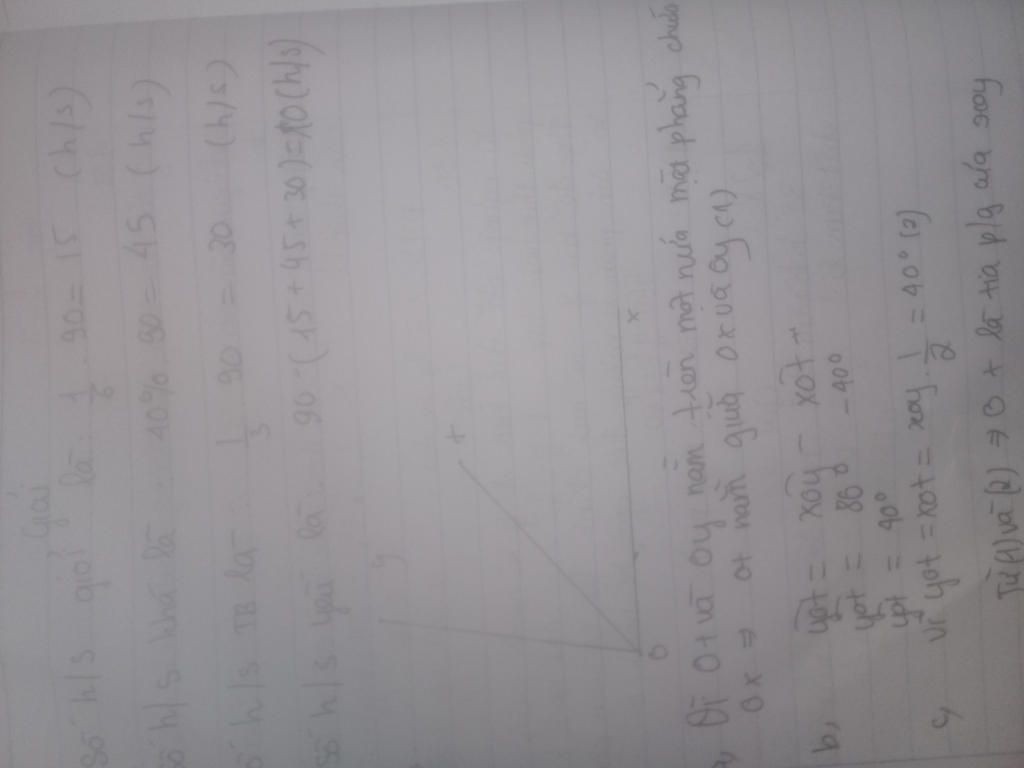 Giải
Số h/s giỏi là: 1/6 . 90 = 15 (h/s)
số h/s khá là: 40% . 90 = 45 (h/s)
số h/s TB là: 1/3 . 90 = 30 (h/s)
số h/s yếu là: 90 - (15 + 45 + 30) = 10 (h/s)
y
t
x
O
a, Vì Ot và Oy nằm trên một nửa mặt phẳng chứa
Ox ⇒ Ot nằm giữa Ox và Oy (1)
b, yot = xoy - xot
yot = 80 - 40°
yot = 40°
c, Vì yot = xot = xoy . 1/2 = 40° (2)
Từ (1) và (2) ⇒ Ot là tia p/g của xoy